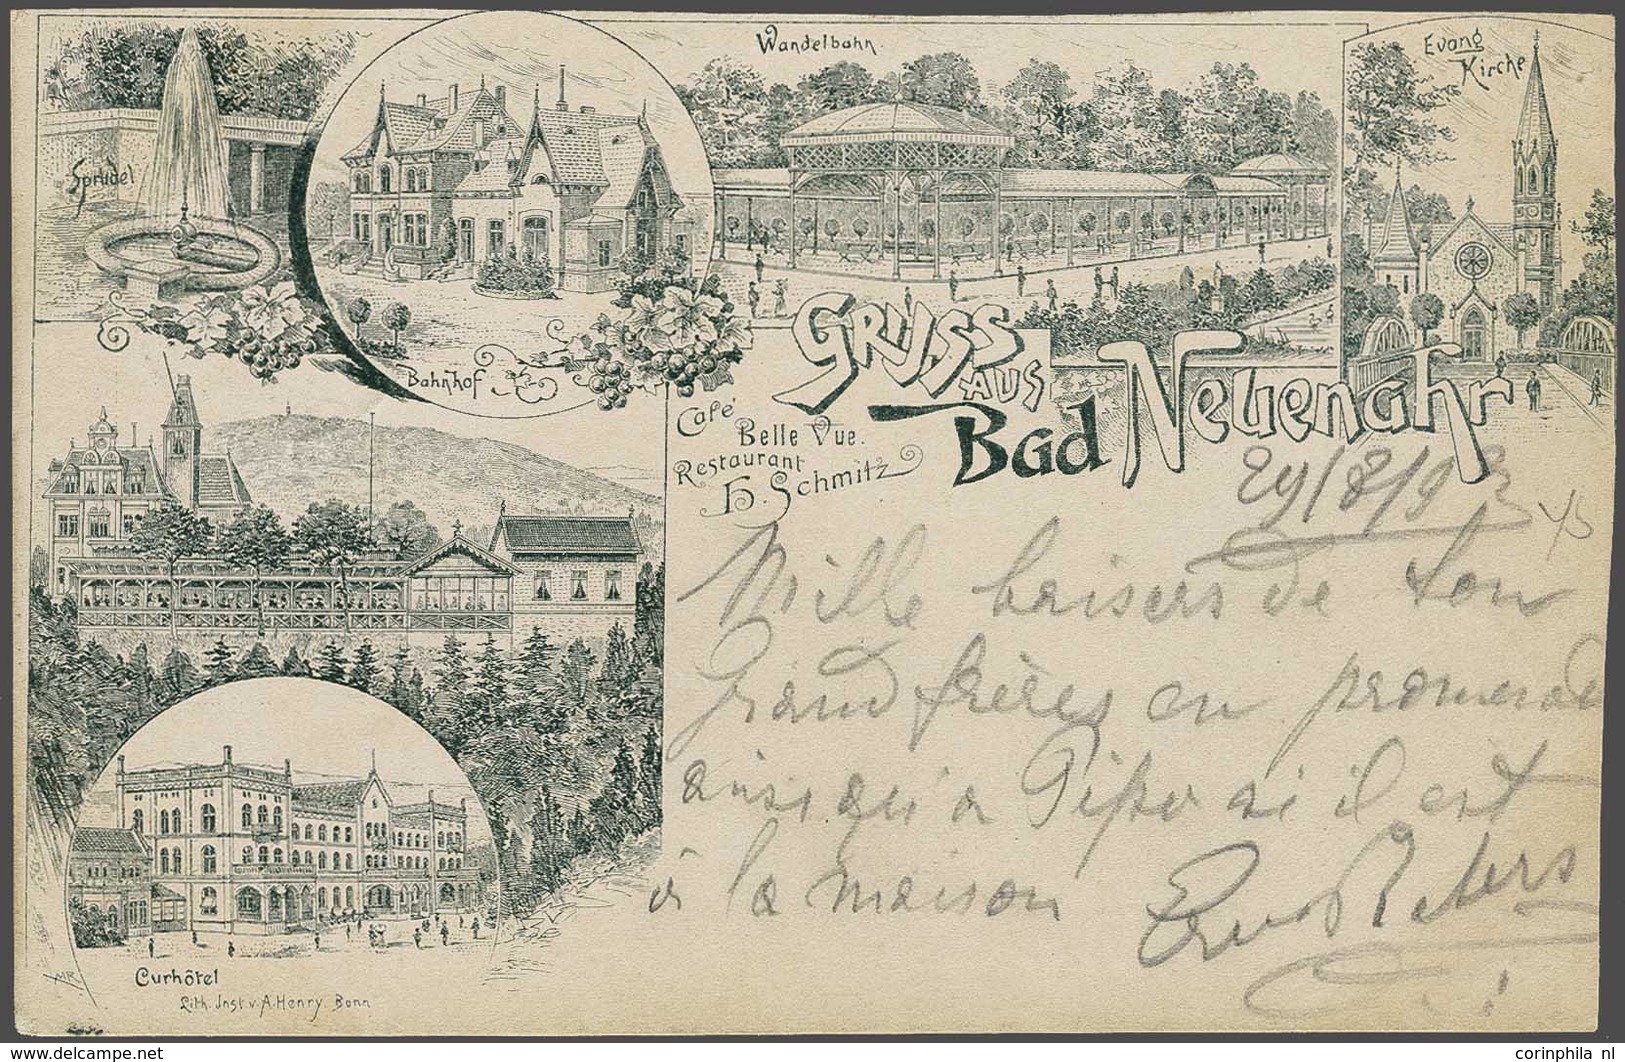 Sprudel
Bahnhof
Wandelbahn.
Evang
Kirche
Gruss
aus
Bad Neuenahr
Café
Belle Vue.
Restaurant
H. Schmitz
29/8/93
Mille baisers de ton
Grand frères en promenade
ainsi qu'a Pipo si il est
à la maison
Curhôtel
MR
Lith. Inst. v. A. Henry. Bonn
delcampe.net
corinphila nl